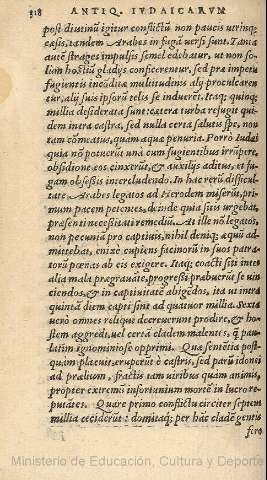 318 ANTIQ. IVDAICARVM
post diutinũ igitur conflictũ non paucis utrinq;
cæsis, tandem Arabes in fugã uersi sunt. Tanta
autẽ strages impulsis semel edebatur, ut non so-
lum hostiũ gladijs conficerentur, sed præ imperu
fugientis incõdita multitudinis alij proculcaren
tur, alij suis ipsorũ telis se induerẽt. Itaq; quinq;
millia desiderata sunt: cætera turba refugit qui-
dem intra castra, sed nulla certa salutis spe, non
tam cõmeatus, quam aquæ penuria. Porrò Iudæi
quia nõ potuerũt unà cum fugientibus irrũpere,
obsidione eos cinxerũt, & auxilijs aditus, et fu-
gam obsessis intercludendo. In hac rerũ difficul-
tate Arabes legatos ad Herodem miserũt, pri-
mum pacem petentes, deinde quia sitis urgebat,
præsenti necessitati remediũ. At ille nõ legatos,
non pecuniã pro captiuis, nihil deniq; æqui ad-
mittebat, enixè cupiens facinorũ in suos patra-
torũ pœnas ab eis exigere. Itaq; coacti siti inter
alia mala prægrauãte, progressi præbuerũt se uin
ciendos, & in captiuitatẽ abigédos, ita ut intra
quintã diem capti sint ad quatuor millia. Sexta
uerò omnes reliqui decreuerunt prodire, & ho-
stem aggredi, uel certã cladem malentes, q̃ pau-
latim ignominiose opprimi. Quæ sententia post-
quàm placuit, eruperũt è castris, sed parũ idonei
ad prælium, fractis tam uiribus quam animis,
propter extremũ infortunium mortẽ in lucro re-
putãtes. Quare primo conflictu circiter septem
millia ceciderũt: domitaq; per hãc cladẽ gentis
fero
Ministerio de Educación, Cultura y Deporte